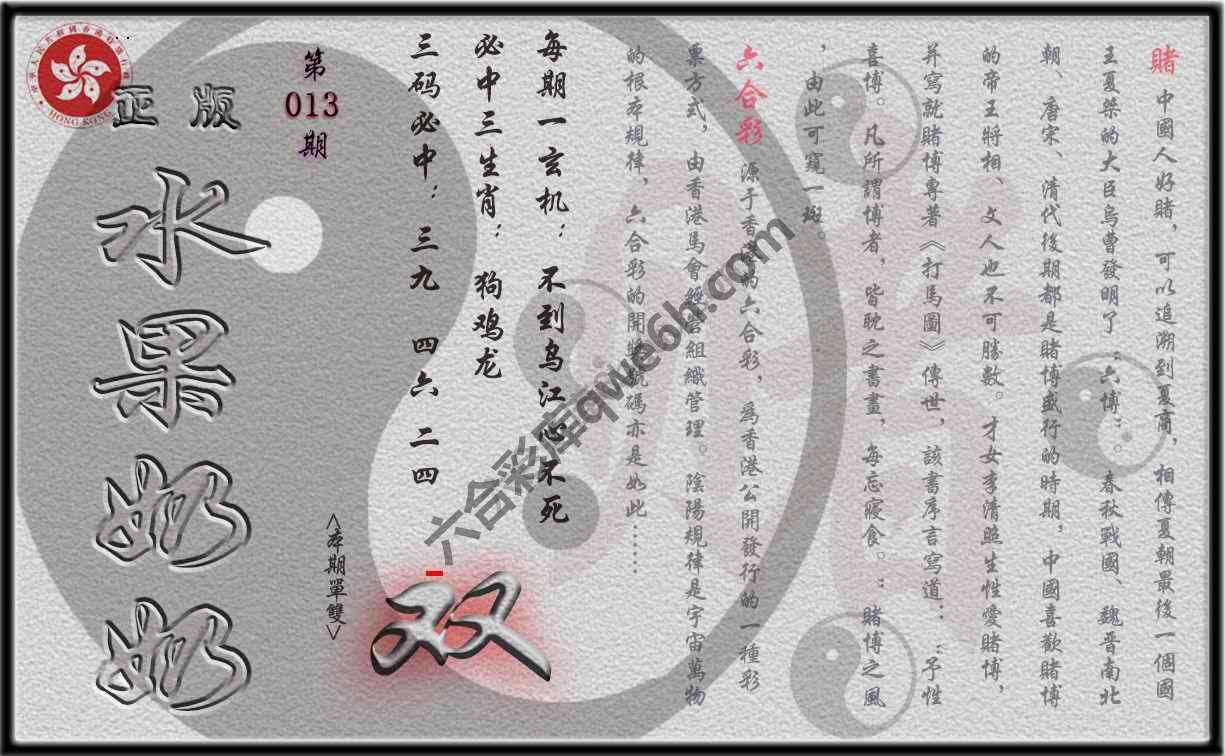 HONG KONG
正版
水果奶奶
第
013
期
每期一玄机：不到乌江心不死
必中三生肖：狗鸡龙
三码必中：三九 四六 二四
<本期單雙>
双
六合彩库qwe6h.com
賭 中國人好賭，可以追溯到夏商，相傳夏朝最後一個國
王夏桀的大臣烏曹發明了：六博：。春秋戰國、魏晋南北
朝、唐宋、清代後期都是賭博盛行的時期，中國喜歡賭博
的帝王將相、文人也不可勝數。才女李清照生性愛賭博，
并寫就賭博專著《打馬圖》傳世，該書序言寫道：：予性
喜博。凡所謂博者，皆耽之書畫，每忘寢食。：賭博之風
，由此可窺一斑。
六合彩 源于香港的六合彩，爲香港公開發行的一種彩
票方式，由香港馬會經營組織管理。陰陽規律是宇宙萬物
的根本規律、六合彩的開獎號碼亦是如此……